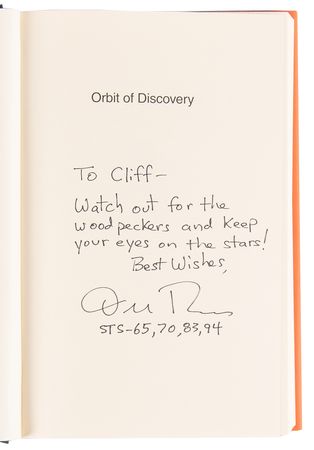 Orbit of Discovery
To Cliff—
Watch out for the
woodpeckers and keep
your eyes on the stars!
Best Wishes,
STS-65, 70, 83, 94